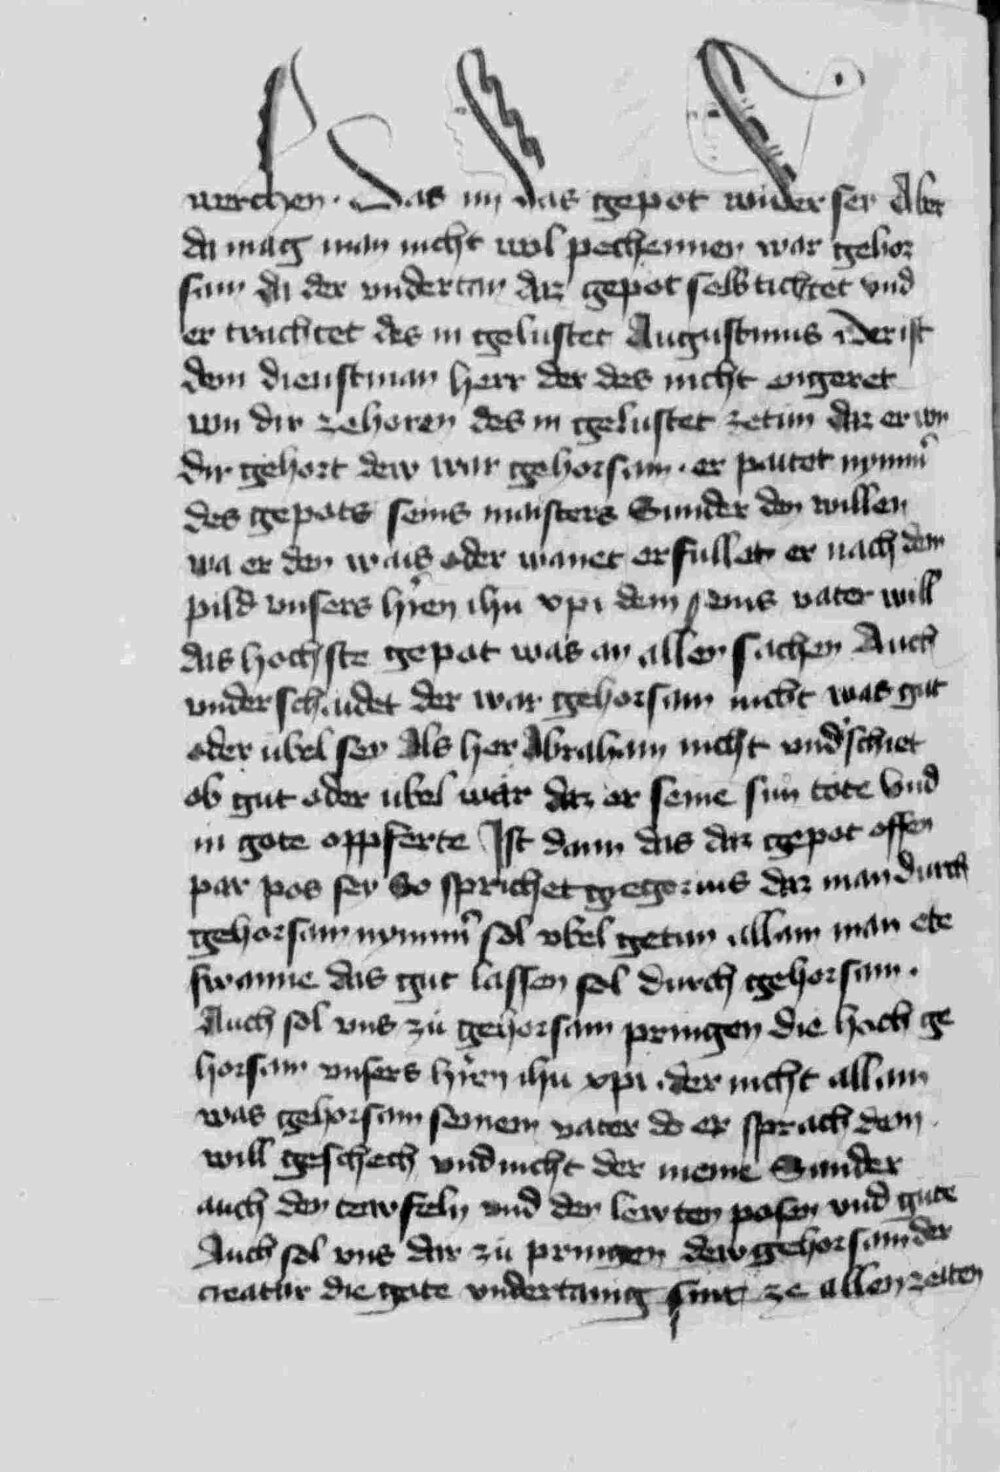 werchen. Das im das gepot wider sey Aber
da mag man nicht wol pechennen war gehor
sam da der vndertan daz gepot selb tichtet vnd
er trachtet des in gelustet Augustinus Der ist
dein dienstman herr der des nicht engeret
von dir zehoren des in gelustet zetun daz er von
dir gehort dew war gehorsam. er paitet nymm̄
des gepots seins maisters Sunder den willen
wa er den wais oder wanet erfullet er nach dem
pild vnsers hr̄en ihū xpi dem seins vater will
das hochste gepot was an allen sachen Auch
vnderschaidet der war gehorsam nicht was gut
oder ubel sey Als her Abraham nicht vnd'schiet
ob gut oder ubel wär daz er seinē sun tote Vnd
in gote oppferte Ist dann das daz gepot offen
par pos sey So sprichet gregorius daz man durch
gehorsam nymm̄ sol vbel getun allain man ete
swanne das gut lassen sol durch gehorsam.
Auch sol vns zu gehorsam pringen die hoch ge
horsam vnsers hr̄en ihū xpi. der nicht allain
was gehorsam seinem vater do er sprach dein
will geschech vnd nicht der meine Sunder
auch den tewfeln vnd den lewten posen vnd gute
Auch sol vns dar zu pringen dew gehorsam der
creatur die gote vndertanig sint ze allen zeiten